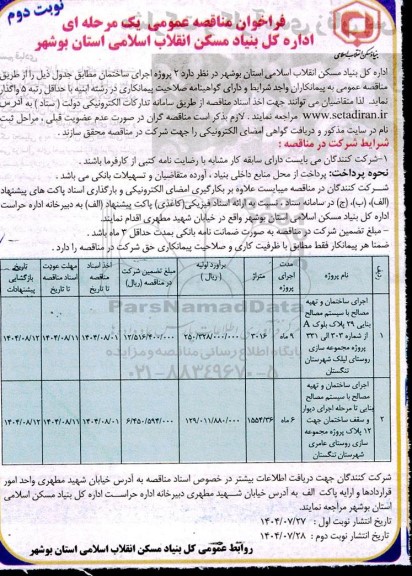 نوبت دوم
فراخوان مناقصه عمومی یک مرحله ای
اداره کل بنیاد مسکن انقلاب اسلامی استان بوشهر
بنیاد مسکن انقلاب اسلامی
اداره کل بنیاد مسکن انقلاب اسلامی استان بوشهر در نظر دارد ۲ پروژه اجرای ساختمان مطابق جدول ذیل را از طریق
مناقصه عمومی به پیمانکاران واجد شرایط و دارای گواهینامه صلاحیت پیمانکاری در رشته ابنیه با حداقل رتبه ۵ واگذار
نماید. لذا متقاضیان می توانند جهت اخذ اسناد مناقصه از طریق سامانه تدارکات الکترونیکی دولت ( ستاد ) به آدرس
www.setadiran.ir مراجعه نمایند. لازم بذکر است مناقصه گران در صورت عدم عضویت قبلی ، مراحل ثبت
نام در سایت مذکور و دریافت گواهی امضای الکترونیکی را جهت شرکت در مناقصه محقق سازند .
شرایط شرکت در مناقصه :
۱-شرکت کنندگان می بایست دارای سابقه کار مشابه با رضایت نامه کتبی از کارفرما باشند .
نحوه پرداخت: پرداخت از محل منابع داخلی بنیاد ، آورده متقاضیان و تسهیلات بانکی می باشد .
شرکت کنندگان در مناقصه میبایست علاوه بر بکارگیری امضای الکترونیکی و بارگذاری اسناد پاکت های پیشنهاد
(الف)، (ب)، (ج) در سامانه ستاد، نسبت به ارائه اسناد فیزیکی(کاغذی) پاکت پیشنهاد (الف) به دبیرخانه اداره حراست
اداره کل بنیاد مسکن استان بوشهر واقع در خیابان شهید مطهری اقدام نمایند.
- مبلغ تضمین شرکت در مناقصه به صورت ضمانت نامه بانکی بمدت حداقل ۳ ماه باشد .
ضمنا هر پیمانکار فقط مطابق با ظرفیت کاری و صلاحیت پیمانکاری حق شرکت در مناقصه را دارد .
ردیف نام پروژه مدت اجرای پروژه متراژ برآورد اولیه ( ریال ) مبلغ تضمین شرکت در مناقصه (ریال) اخذ اسناد مناقصه تا تاریخ مهلت عودت اسناد مناقصه تا تاریخ تاریخ بازگشایی پیشنهادات
۱ اجرای ساختمان و تهیه مصالح با سیستم مصالح بنایی ۲۹ پلاک بلوک A از شماره ۳۰۳ الی ۳۳۱ پروژه مجموعه سازی روستای لیلک شهرستان تنگستان ۹ ماه ۳۰۱۶ ۲۵۰/۳۲۸/۰۰۰/۰۰۰ ۱۲/۵۱۶/۴۰۰/۰۰۰ ۱۴۰۴/۰۸/۰۱ ۱۴۰۴/۰۸/۱۱ ۱۴۰۴/۰۸/۱۲
۲ اجرای ساختمان و تهیه مصالح با سیستم مصالح بنایی تا مرحله اجرای دیوار و سقف ساختمان جهت ۱۲ پلاک پروژه مجموعه سازی روستای عامری شهرستان تنگستان ۶ ماه ۱۵۵۴/۳۶ ۱۲۹/۰۱۱/۸۸۰/۰۰۰ ۶/۴۵۰/۵۹۴/۰۰۰ ۱۴۰۴/۰۸/۰۱ ۱۴۰۴/۰۸/۱۱ ۱۴۰۴/۰۸/۱۲
ParsNamadData
۰۲۱-۸۸۳۴۹۶۷۰-۵
شرکت کنندگان جهت دریافت اطلاعات بیشتر در خصوص اسناد مناقصه به آدرس خیابان شهید مطهری واحد امور
قراردادها و ارایه پاکت الف به آدرس خیابان شهید مطهری دبیرخانه اداره حراست اداره کل بنیاد مسکن اسلامی
استان بوشهر مراجعه نمایند.
تاریخ انتشار نوبت اول : ۱۴۰۴/۰۷/۲۷
تاریخ انتشار نوبت دوم : ۱۴۰۴/۰۷/۲۸
روابط عمومی کل بنیاد مسکن انقلاب اسلامی استان بوشهر